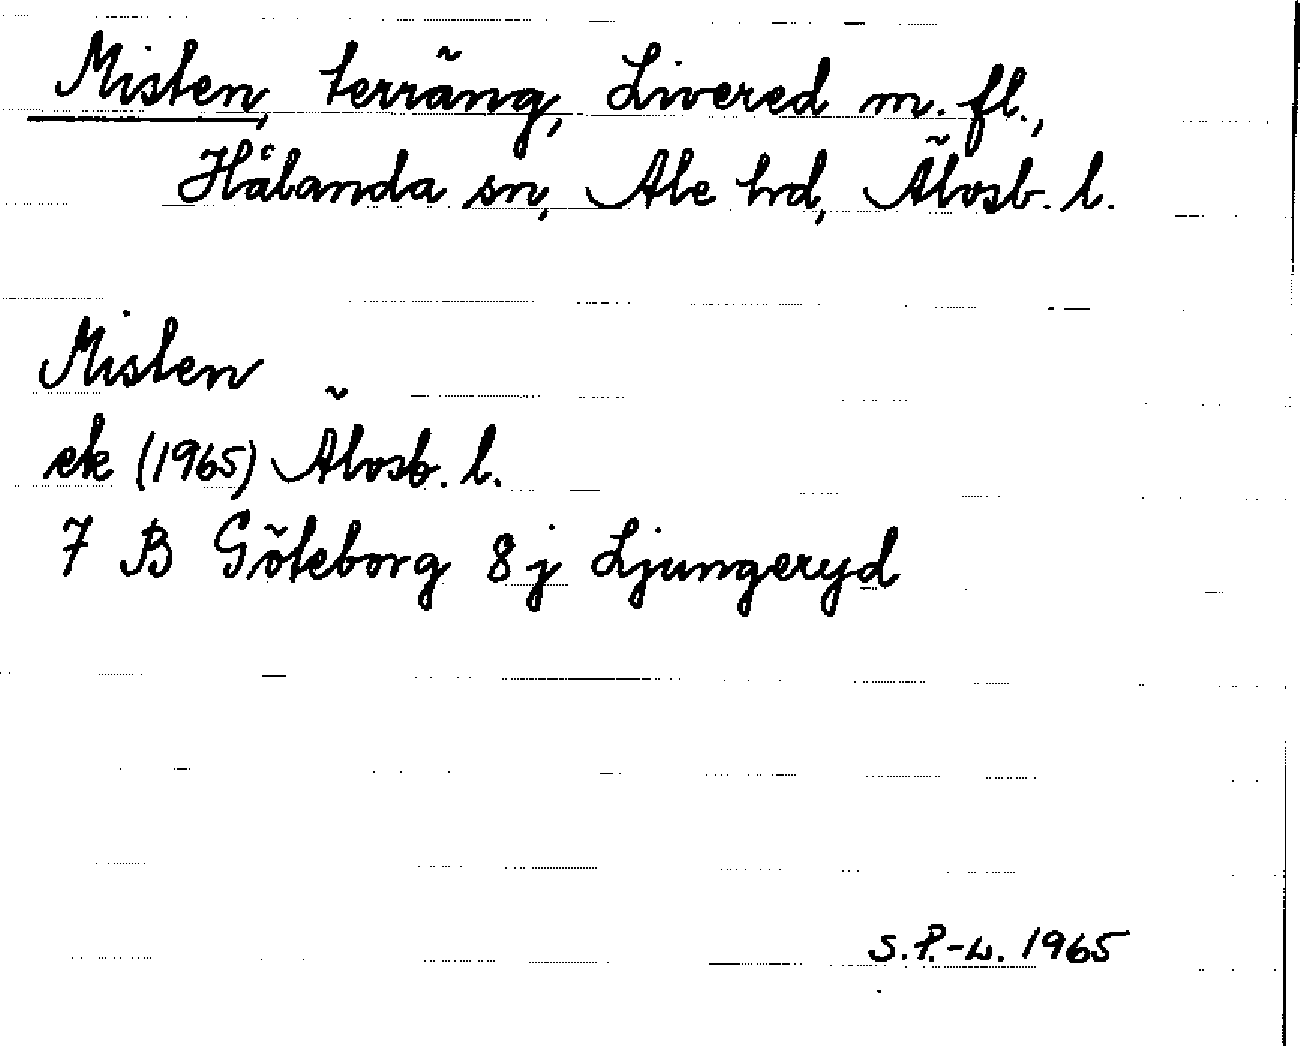 Misten, terräng, Livered m. fl.,
Hålanda sn, Ale hd, Älvsb. l.
Misten
ek (1965) Älvsb. l.
7 B Göteborg 8 j Ljungeryd
S.P.-L. 1965